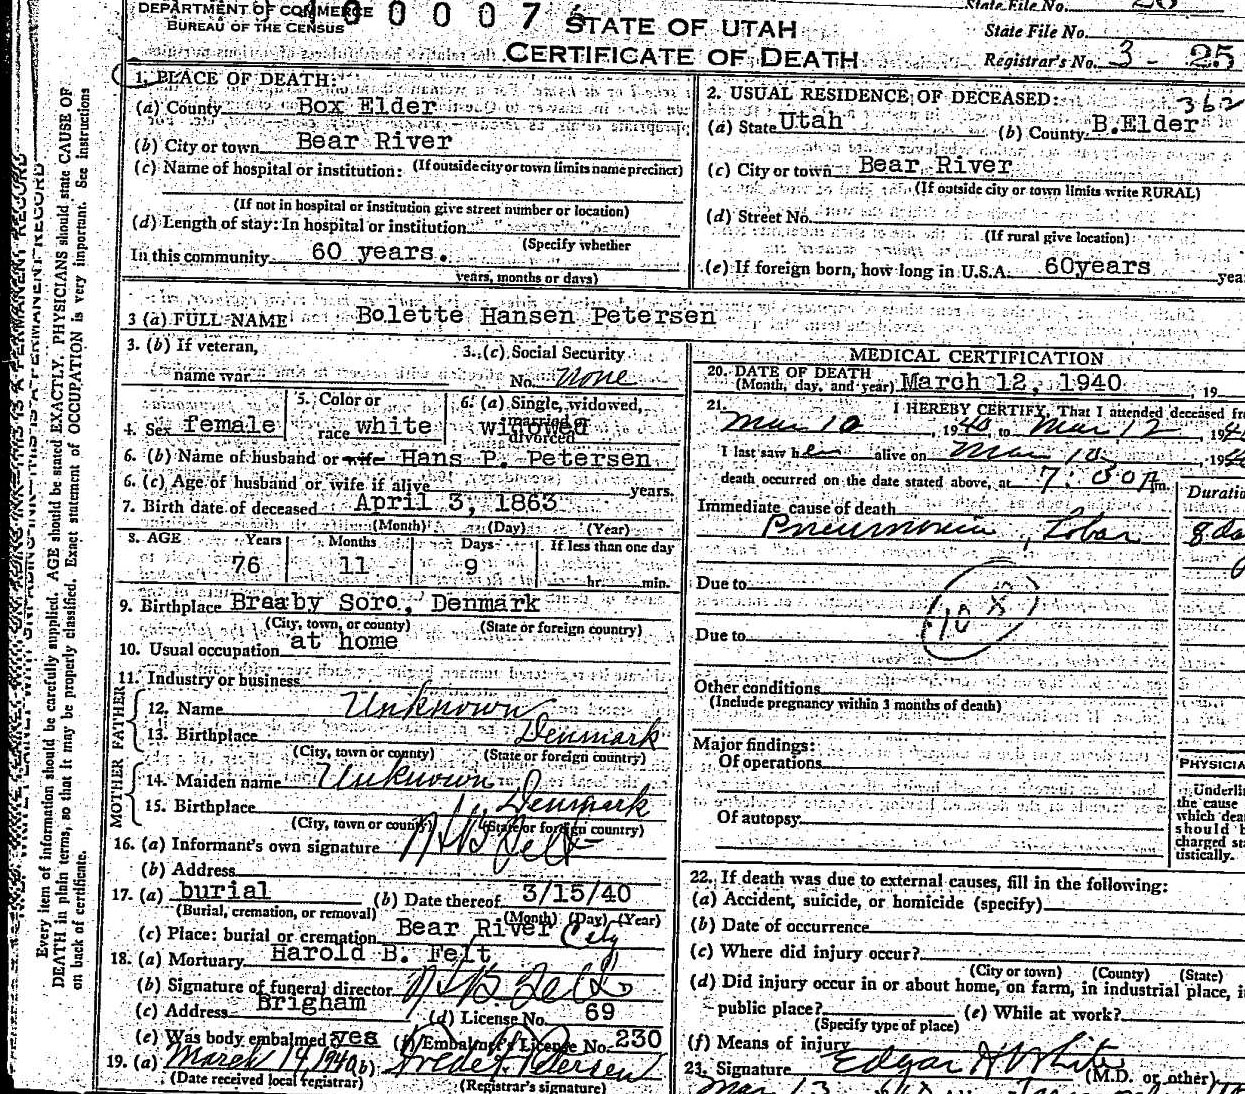 DEPARTMENT OF COMMERCE
BUREAU OF THE CENSUS
0 0 0 7
STATE OF UTAH
CERTIFICATE OF DEATH
State File No.
State File No.
Registrar's No. 3 - 25
1. PLACE OF DEATH:
(a) County Box Elder
(b) City or town Bear River
(If outside city or town limits name precinct)
(c) Name of hospital or institution:
(If not in hospital or institution give street number or location)
(d) Length of stay: In hospital or institution
(Specify whether
In this community 60 years.
years, months or days)
2. USUAL RESIDENCE OF DECEASED:
362
(a) State Utah (b) County B.Elder
(c) City or town Bear River
(If outside city or town limits write RURAL)
(d) Street No.
(If rural give location)
(e) If foreign born, how long in U.S.A. 60years yea
3 (a) FULL NAME Bolette Hansen Petersen
3. (b) If veteran,
name war
3. (c) Social Security
No. none
4. Sex female
5. Color or
race white
6. (a) Single, widowed,
married
divorced
widowed
6. (b) Name of husband or wife Hans P. Petersen
6. (c) Age of husband or wife if alive years.
7. Birth date of deceased April 3, 1863
(Month) (Day) (Year)
8. AGE Years Months Days If less than one day
76 11 9 hr. min.
9. Birthplace Braaby Soro, Denmark
(City, town, or county) (State or foreign country)
10. Usual occupation at home
11. Industry or business
FATHER
12. Name Unknown
13. Birthplace Denmark
(City, town or county) (State or foreign country)
MOTHER
14. Maiden name Unknown
15. Birthplace Denmark
(City, town or county) (State or foreign country)
16. (a) Informant's own signature H B Felt
(b) Address
17. (a) burial (b) Date thereof 3/15/40
(Burial, cremation, or removal) (Month) (Day) (Year)
(c) Place: burial or cremation Bear River City
18. (a) Mortuary Harold B. Felt
(b) Signature of funeral director H B Felt
(c) Address Brigham (d) License No. 69
(e) Was body embalmed yes (f) Embalmer's License No. 230
19. (a) March 14, 1940 (b) Petersen
(Date received local registrar) (Registrar's signature)
MEDICAL CERTIFICATION
20. DATE OF DEATH
(Month, day, and year) March 12, 1940, 19
21. I HEREBY CERTIFY, That I attended deceased fr
Mar 10, 1940 to Mar 12, 194
I last saw her alive on Mar 10, 194
death occurred on the date stated above, at 7:30 A m.
Duratio
Immediate cause of death
Pneumonia, Lobar 8 da
Due to
108
Due to
Other conditions
(Include pregnancy within 3 months of death)
Major findings:
Of operations
Of autopsy
PHYSICIA
Underli
the cause
which dea
should b
charged sta
tistically.
22. If death was due to external causes, fill in the following:
(a) Accident, suicide, or homicide (specify)
(b) Date of occurrence
(c) Where did injury occur?
(City or town) (County) (State)
(d) Did injury occur in or about home, on farm, in industrial place, i
public place? (e) While at work?
(Specify type of place)
(f) Means of injury
23. Signature Edgar White (M.D. or other)
Mar 13
Every item of information should be carefully supplied. AGE should be stated EXACTLY. PHYSICIANS should state CAUSE OF
DEATH in plain terms, so that it may be properly classified. Exact statement of OCCUPATION is very important. See instructions
on back of certificate.